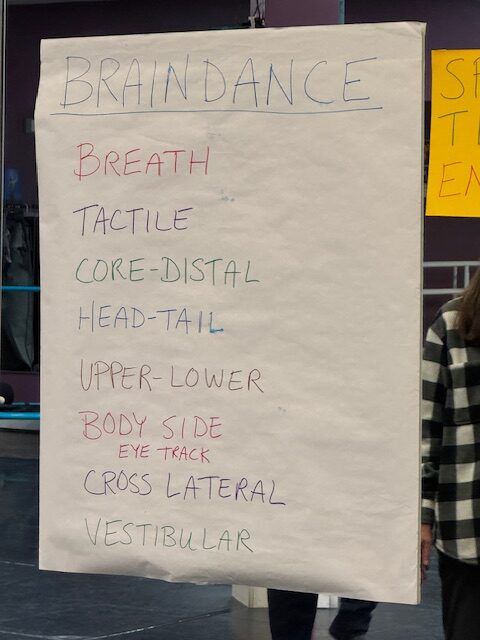 BRAINDANCE
BREATH
TACTILE
CORE-DISTAL
HEAD-TAIL
UPPER-LOWER
BODY SIDE
EYE TRACK
CROSS LATERAL
VESTIBULAR